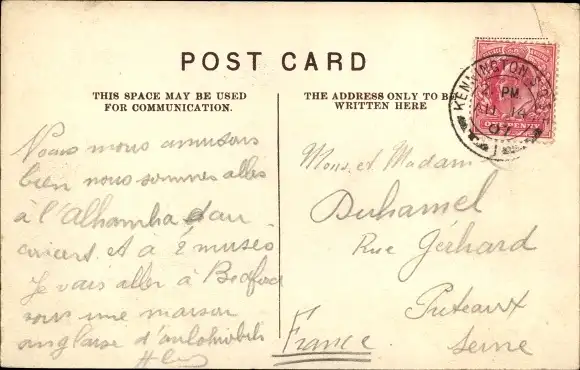 POST CARD
THIS SPACE MAY BE USED
FOR COMMUNICATION.
THE ADDRESS ONLY TO BE
WRITTEN HERE
KENNINGTON
PM
14
07
ONE PENNY
Nous nous amusons
bien nous sommes allés
à l'Alhamba
et a 2 musés
Je vais aller à Bedford
une maison
anglaise d'automobili
Mons. et Madam
Duhamel
Rue Gérhard
Puteaux
Seine
France